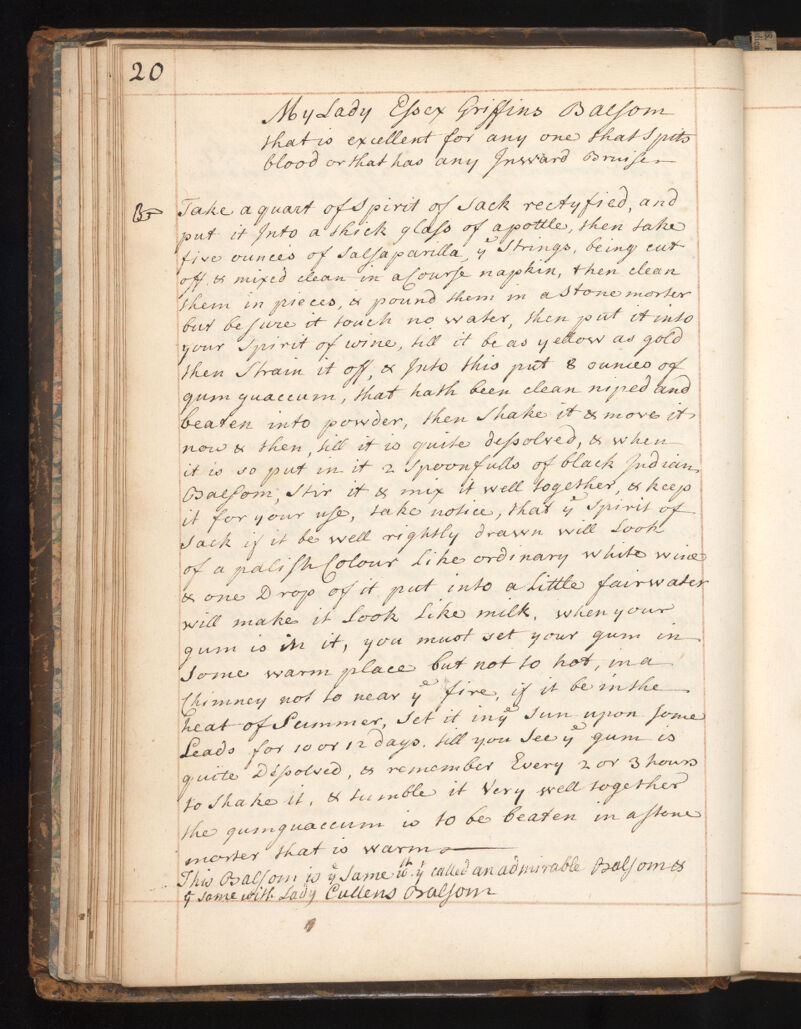 20
My Lady Essex Griffins Balsom
that is excellent for any one that spits
blood or that has any Inward Bruise
Take a quart of Spirit of Sack rectyfied, and
put it Into a thick glass of a pottle, then take
five ounces of Salsaparilla, ye Strings, being cut
off & mixed clean in a Course napkin, then clean
them in pieces, & pound them in a Stone morter
but be sure it touch no water, then put it into
your Spirit of wine, till it be as yellow as gold
then Strain it off, & Into this put 8 ounces of
gum guaccum, that hath been clean niped and
beaten into powder, then shake it & move it
now & then, till it is quite dessolved, & when
it is so put in it 2 spoonfulls of black Indian
Balsom, Stir it & mix it well together, & keep
it for your use, take notice, that ye Spirit of
Sack if it be well rightly drawn will Look
of a palish Colour Like ordinary white wine
& one Drop of it put into a Little fair water
will make it Look Like milk. when your
gum is in it, you must set your gum in
Some warm place but not to hot, in a
Chimney not to near ye fire, if it be in the
heat of Summer, Set it in ye Sun upon some
Leads for 10 or 12 days. till you See ye gum is
quite Dessolved, & remember Every 2 or 3 hours
to shake it, & tumble it Very well together
the gumguaccum is to be beaten in a stone
morter that is warm
This Balsom is ye Same wth yt called an admirrable Balsom &
ye same with Lady Cullens Balsom